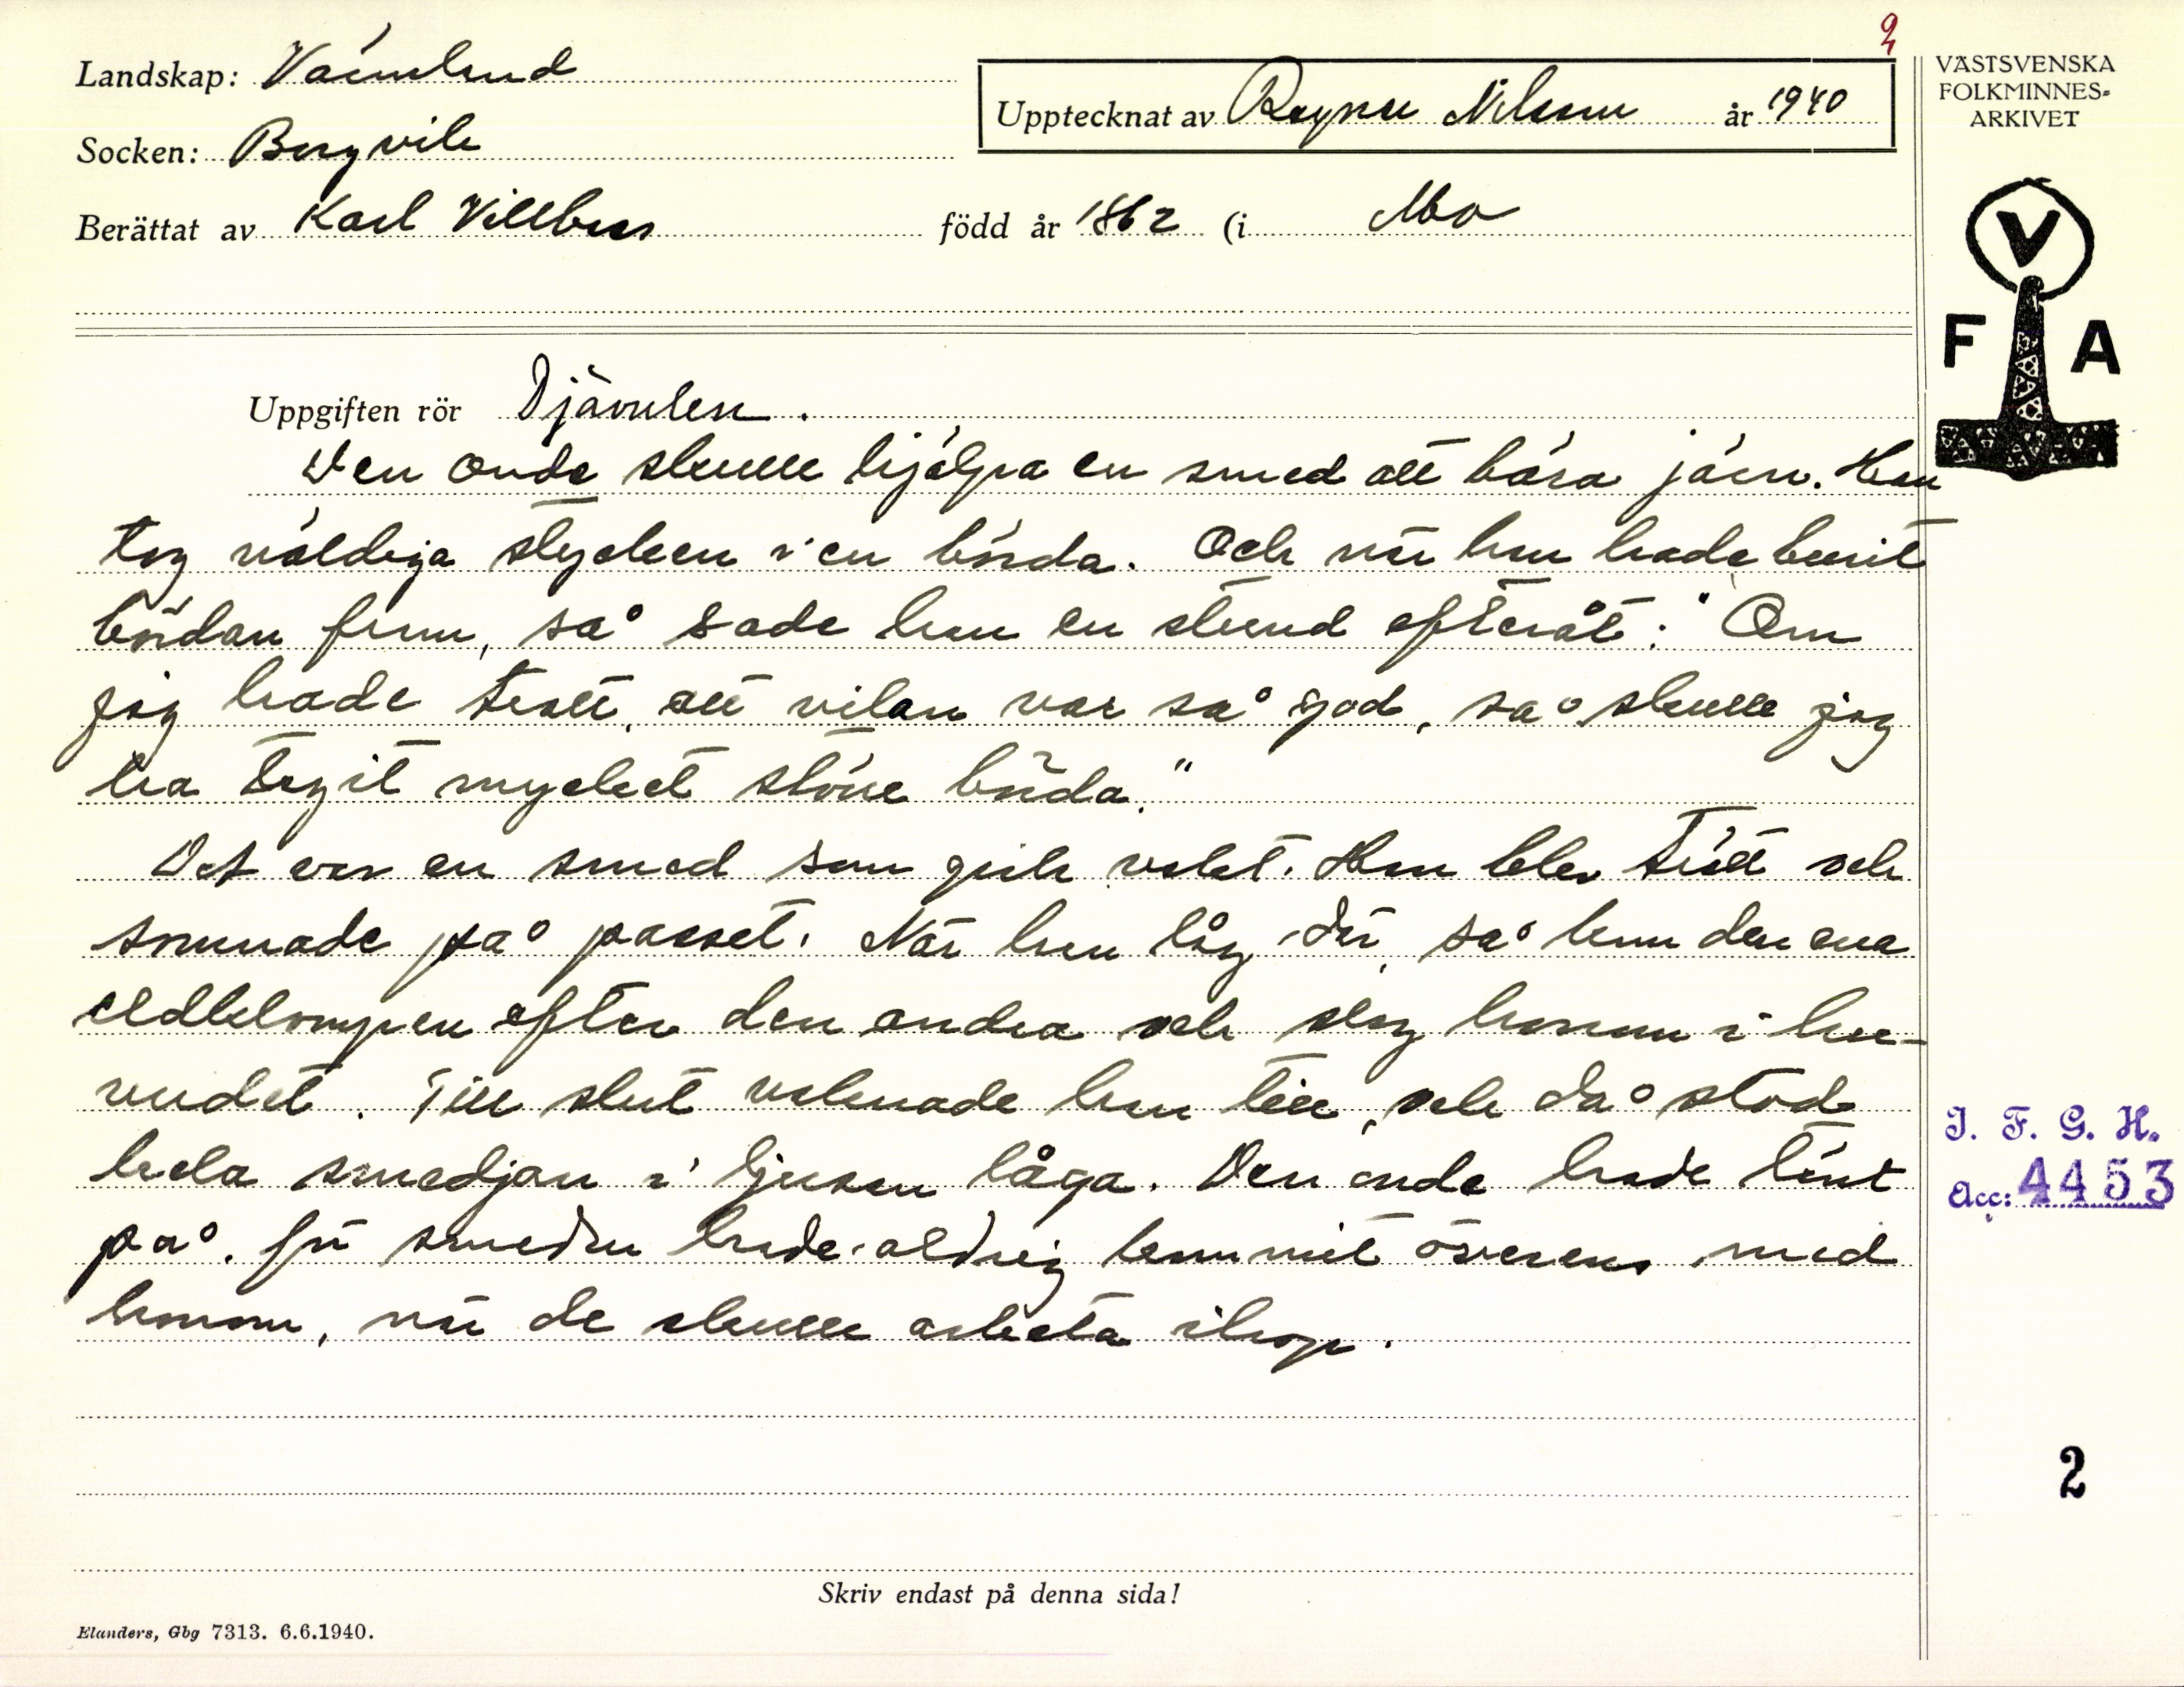 2
Landskap: Värmland
Upptecknat av Ragnar Nilsson år 1940
VÄSTSVENSKA
FOLKMINNES-
ARKIVET
Socken: Borgvik
Berättat av Karl Villbess född år 1862 (i Mo
V
F A
Uppgiften rör Djävulen.
Den onde skulle hjälpa en smed att bära järn. Han
tog väldiga stycken i en börda. Och när han hade burit
bördan fram, så sade han en stund efteråt: "Om
jag hade trott, att vilan var så god, så skulle jag
ha tagit mycket större börda."
Det var en smed som gick vakt. Han blev trött och
somnade på passet. När han låg där, så kom den ena
eldklompen efter den andra och slog honom i hu-
vudet. Till slut vaknade han till, och då stod
hela smedjan i ljusan låga. Den onde hade tänt
på. För smeden hade aldrig kommit överens med
honom, när de skulle arbeta ihop.
I. F. G. H.
Acc: 4453
2
Skriv endast på denna sida!
Elanders, Gbg 7313. 6.6.1940.